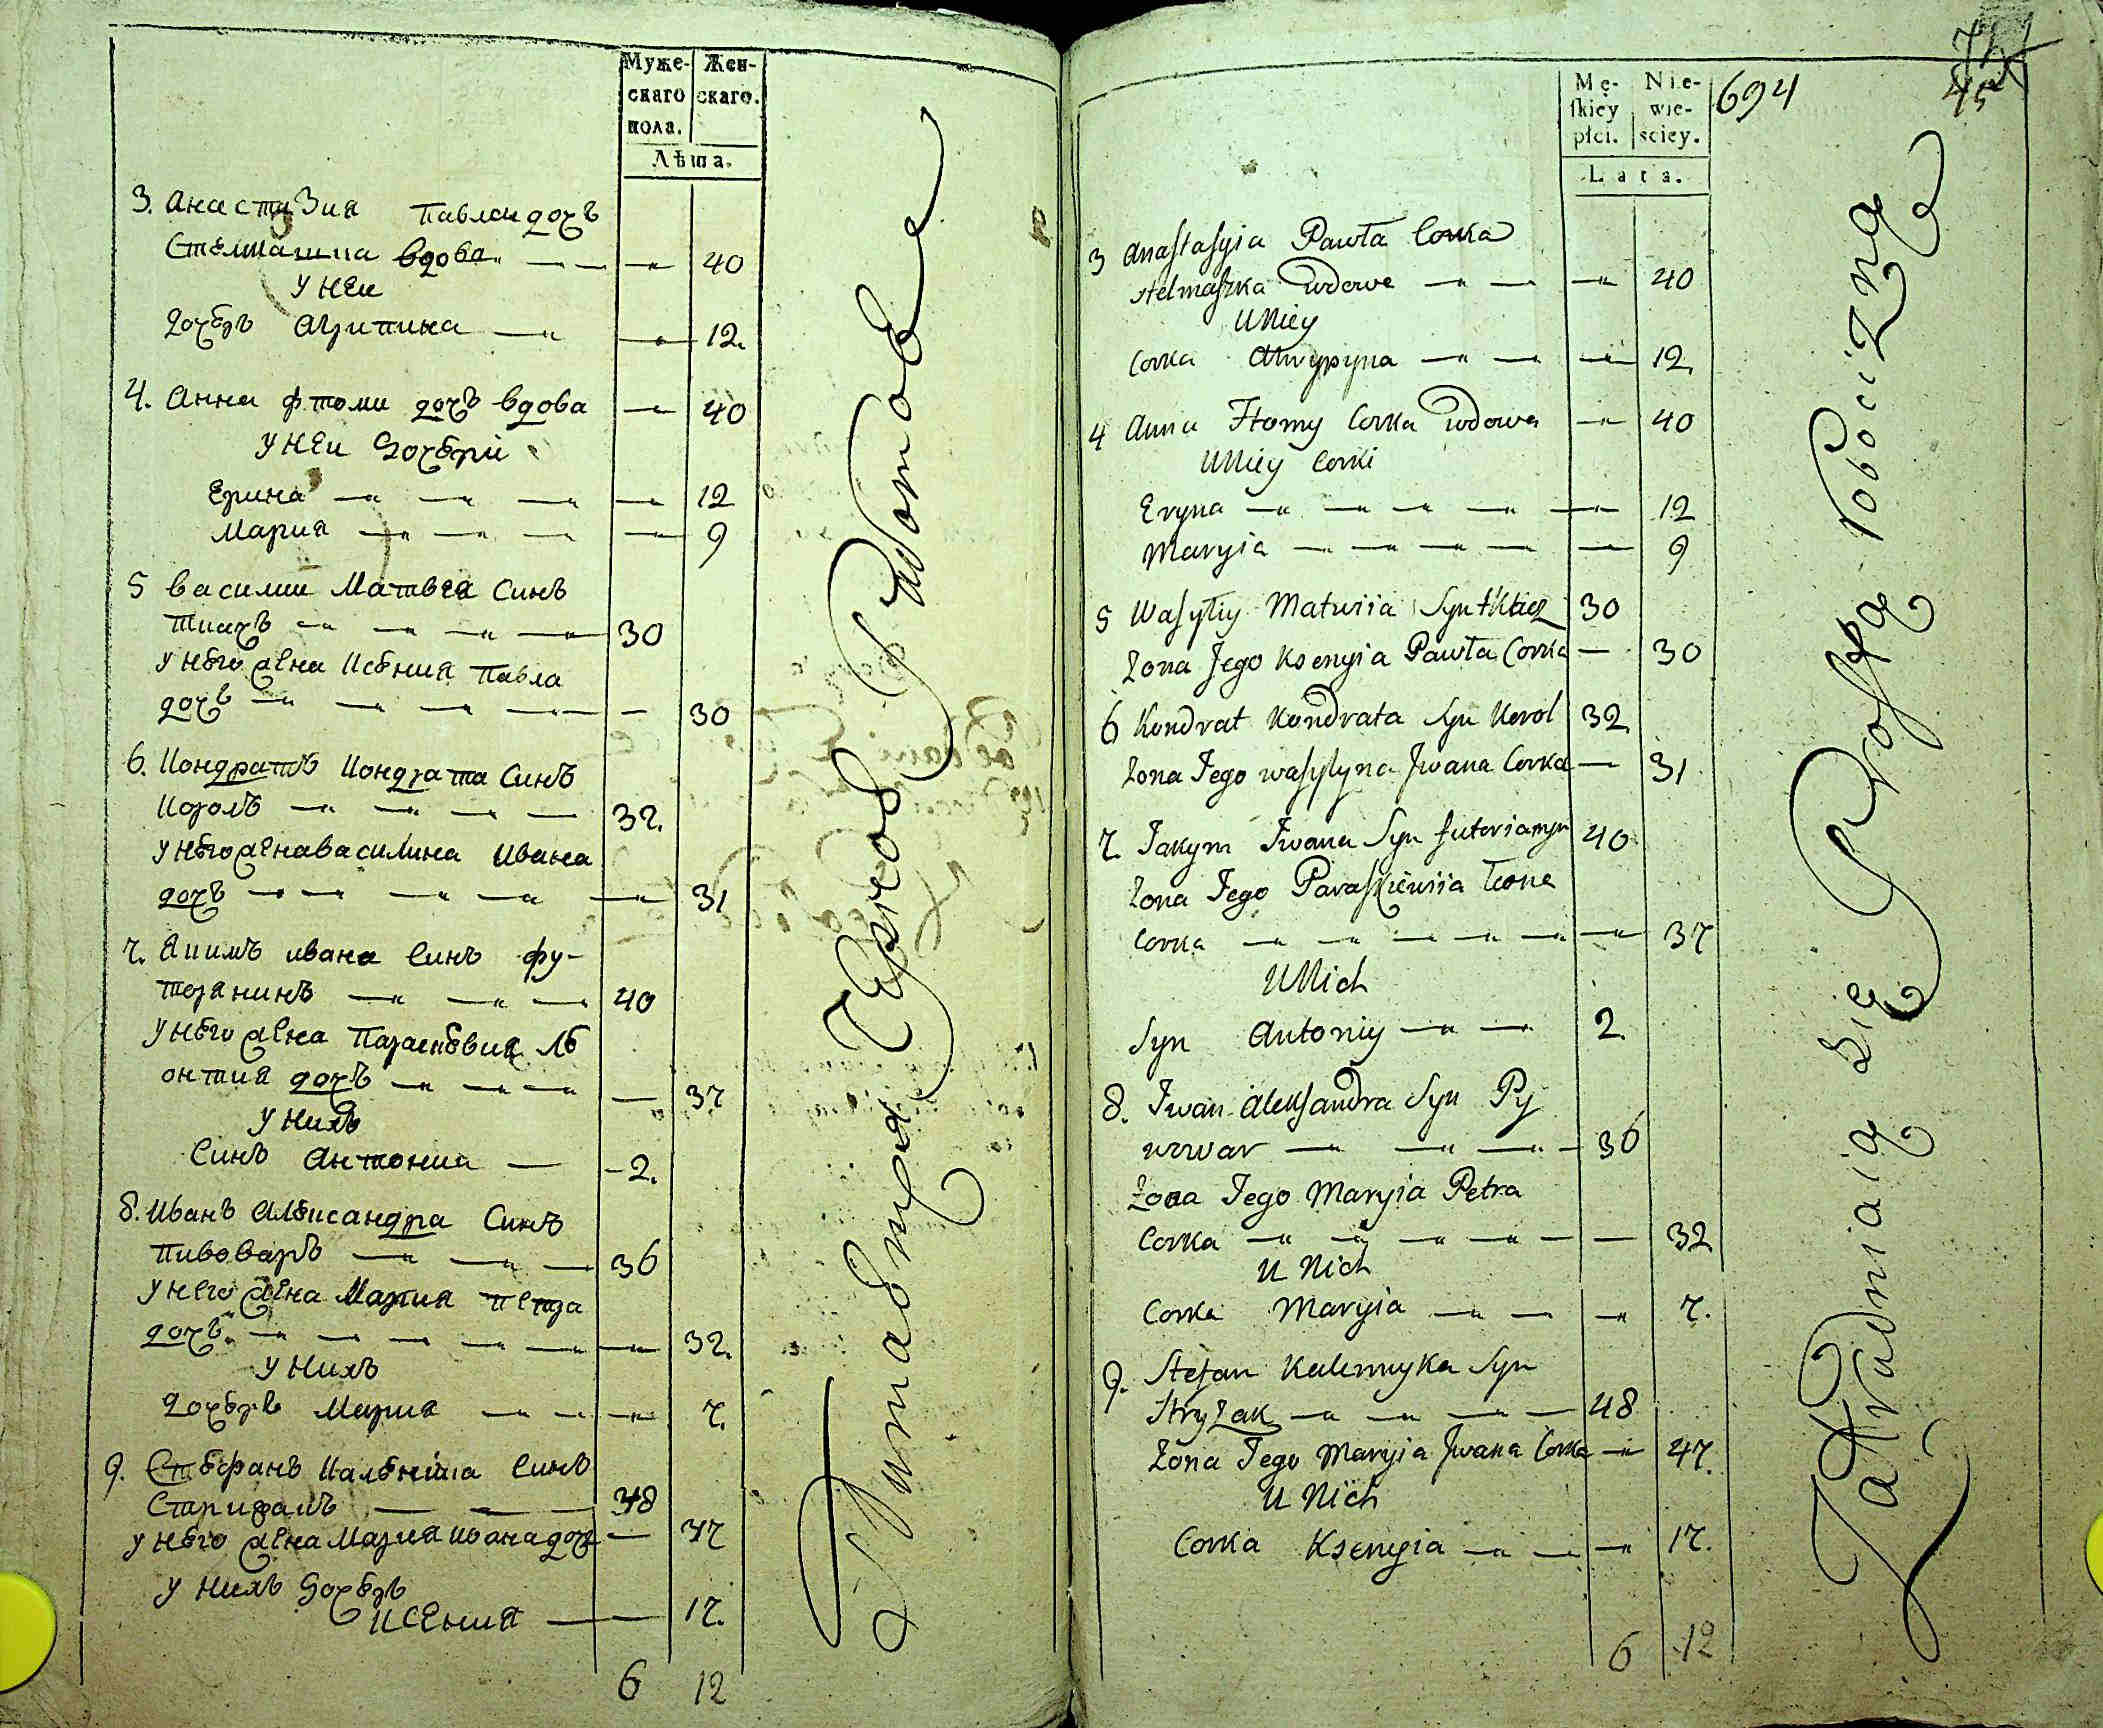 Муже-
скаго
пола.
Жен-
скаго.
Лѣта.
3. Анастазия Павла дочъ
Стелмашка вдова 40
У неи
дочеръ Агрипина 12.
4. Анна Фтоми дочъ вдова 40
У неи дочери
Ерина 12
Мария 9
5 василии Матвея Синъ
Ткачъ 30
У него жена Ксения Павла
дочъ 30
6. Кондратъ Кондрата Синъ
Королъ 32.
У него жена василина Ивана
дочъ 31
7. Якимъ ивана Синъ фу-
торанинъ 40
У него жена Параскевия Ле
онтия дочъ 37
У нихъ
Синъ Антонии 2.
8. Иванъ Александра Синъ
Пивоваръ 36
У него жена Мария Петра
дочъ 32.
У нихъ
дочеръ Мария 7.
9. Стефанъ Каленика Синъ
48
У него жена Мария ивана дочъ 47
У нихъ дочеръ
Ксения 17.
6 12
Mę-
skiey
płci.
Nie-
wie-
sciey.
Lata.
694
45
3 Anastasyia Pawła Corka
stelmaszka wdowa 40
U Niey
Corka 12.
4 Anna Ftomy Corka wdowa 40
U Niey Corki
Eryna 12
Maryia 9
5 Wasyliy Matwiia Syn tkacz 30
Zona Jego Ksenyia Pawła Corka 30
6 Kondrat Kondrata Syn Korol 32
Zona Jego wasylyna Jwana Corka 31
7. Jakym Jwana Syn futorianyn 40
Zona Jego Paraskiewiia Leone
Corka 37
U Nich
Syn Antoniy 2.
8. Jwan Aleksandra Syn Py
wowar 36
Zona Jego Maryia Petra
Corka 32
U Nich
Corka Maryia 7.
9. Stefan Kalennyka Syn
Stryzak 48
Zona Jego Maryia Jwana Corka 47.
U Nich
Corka Ksenyia 17.
6 12
Zatrudniaią Się Prostą Robocizną